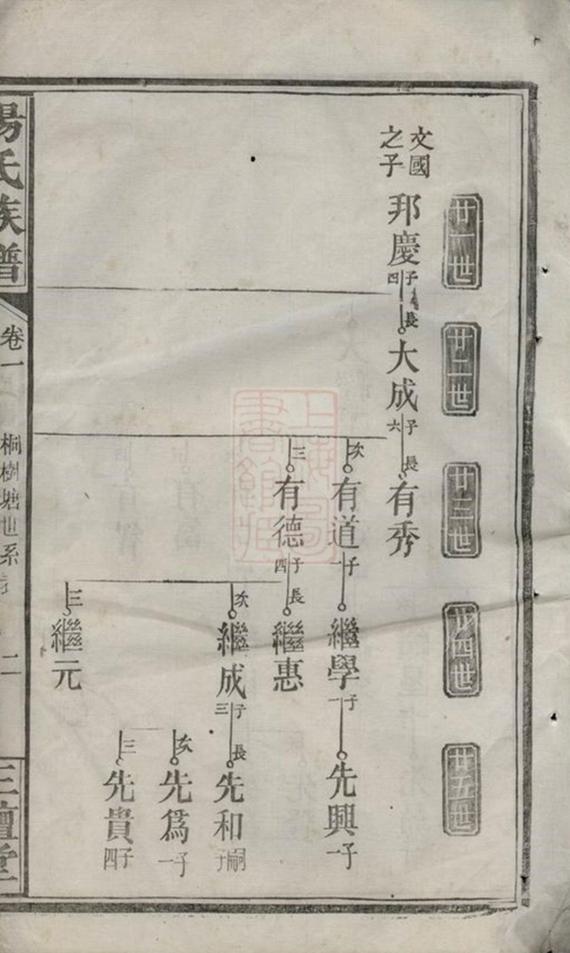 廿一世
廿二世
廿三世
廿四世
廿五世
文國之子
邦慶
子四
長
大成
子六
長
有秀
次
有道
子一
繼學
子一
先興
子一
三
有德
子四
長
繼惠
次
繼成
子三
長
先和
嗣子
次
先爲
子一
三
先貴
子四
三
繼元
楊氏族譜
卷一
桐樹塘世系
二
三鱣堂
上海圖書館藏